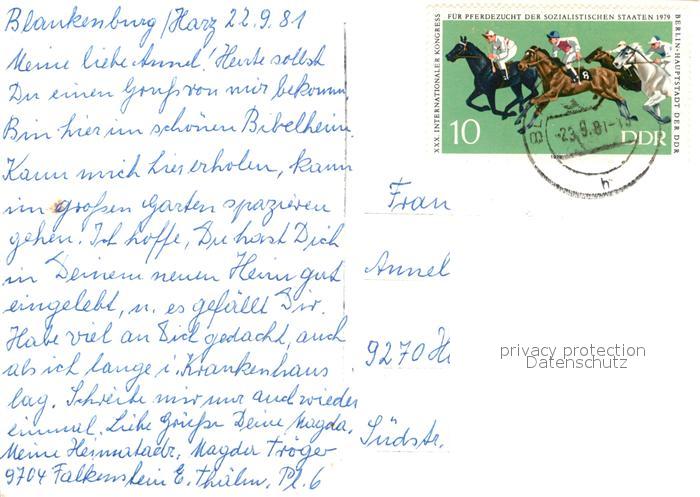 Blankenburg/Harz 22.9.81
Meine liebe Annel! Heute sollst
Du einen Gruß von mir bekomm.
Bin hier im schönen Bibelheim.
Kann mich hier erholen, kann
im großen Garten spazieren
gehen. Ich hoffe, Du hast Dich
in Deinem neuen Heim gut
eingelebt, u. es gefällt Dir.
Habe viel an Dich gedacht, auch
als ich lange i. Krankenhaus
lag. Schreibe mir nur auch wieder
einmal. Liebe Grüße Deine Magda.
Meine Heimatadr. Magda Tröger
9704 Falkenstein E. Thälm. Pl. 6
XXX. INTERNATIONALER KONGRESS
FÜR PFERDEZUCHT DER SOZIALISTISCHEN STAATEN 1979
BERLIN-HAUPTSTADT DER DDR
10
8
DDR
1979
-23.9.81-1
h
Frau
Annel
9270 H
Südstr.
privacy protection
Datenschutz